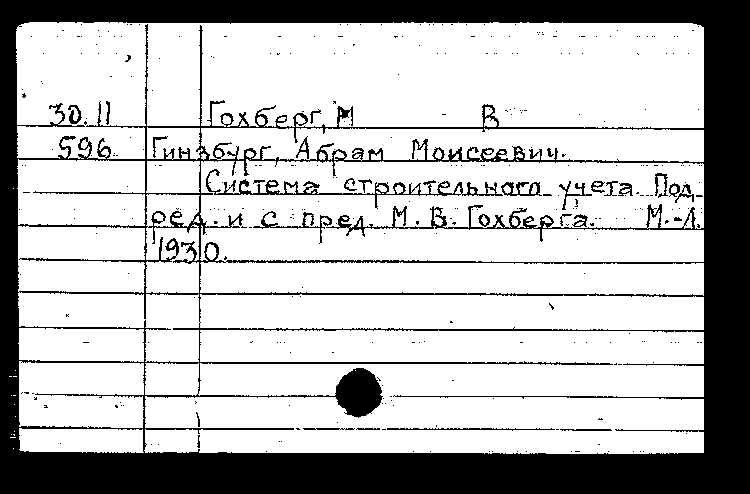 30.11 Гохберг, М В
596 Гинзбург, Абрам Моисеевич.
Система строительного учета. Под
ред. и с пред. М. В. Гохберга. М.-Л.
1930.